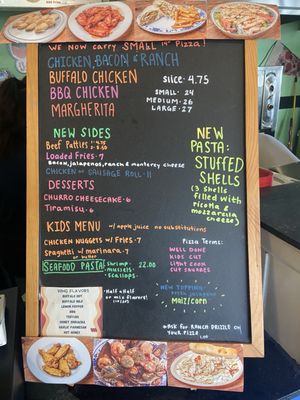 We now carry SMALL 14" Pizza!
CHICKEN, BACON & RANCH
BUFFALO CHICKEN
slice 4.75
BBQ CHICKEN
SMALL-24
MEDIUM-26
MARGHERITA
LARGE-27
NEW SIDES
Beef Patties
Loaded Fries-7
Bacon, jalapenos, ranch & monterey cheese
CHICKEN or SAUSAGE ROLL-11
NEW
PASTA:
STUFFED
SHELLS
(3 shells
filled with
ricotta &
mozzarella
cheese)
DESSERTS
CHURRO CHEESECAKE-6
Tiramisu-6
KIDS MENU w/ apple juice no substitutions
CHICKEN NUGGETS w/ Fries-7
Spaghetti w/ marinara-7
or butter
SEAFOOD PASTA
shrimp
mussels
scallops
22.00
Pizza Terms:
WELL DONE
KIDS CUT
LIGHT COOK
CUT SQUARES
WING FLAVORS
BUFFALO HOT
BUFFALO MILD
LEMON PEPPER
BBQ
TERIYAKI
HONEY SRIRACHA
GARLIC PARMESAN
HOT HONEY
*Half & half
or mix flavors!
NEW TOPPING
Maiz/corn
*Ask for RANCH DRIZZLE on
YOUR Pizza